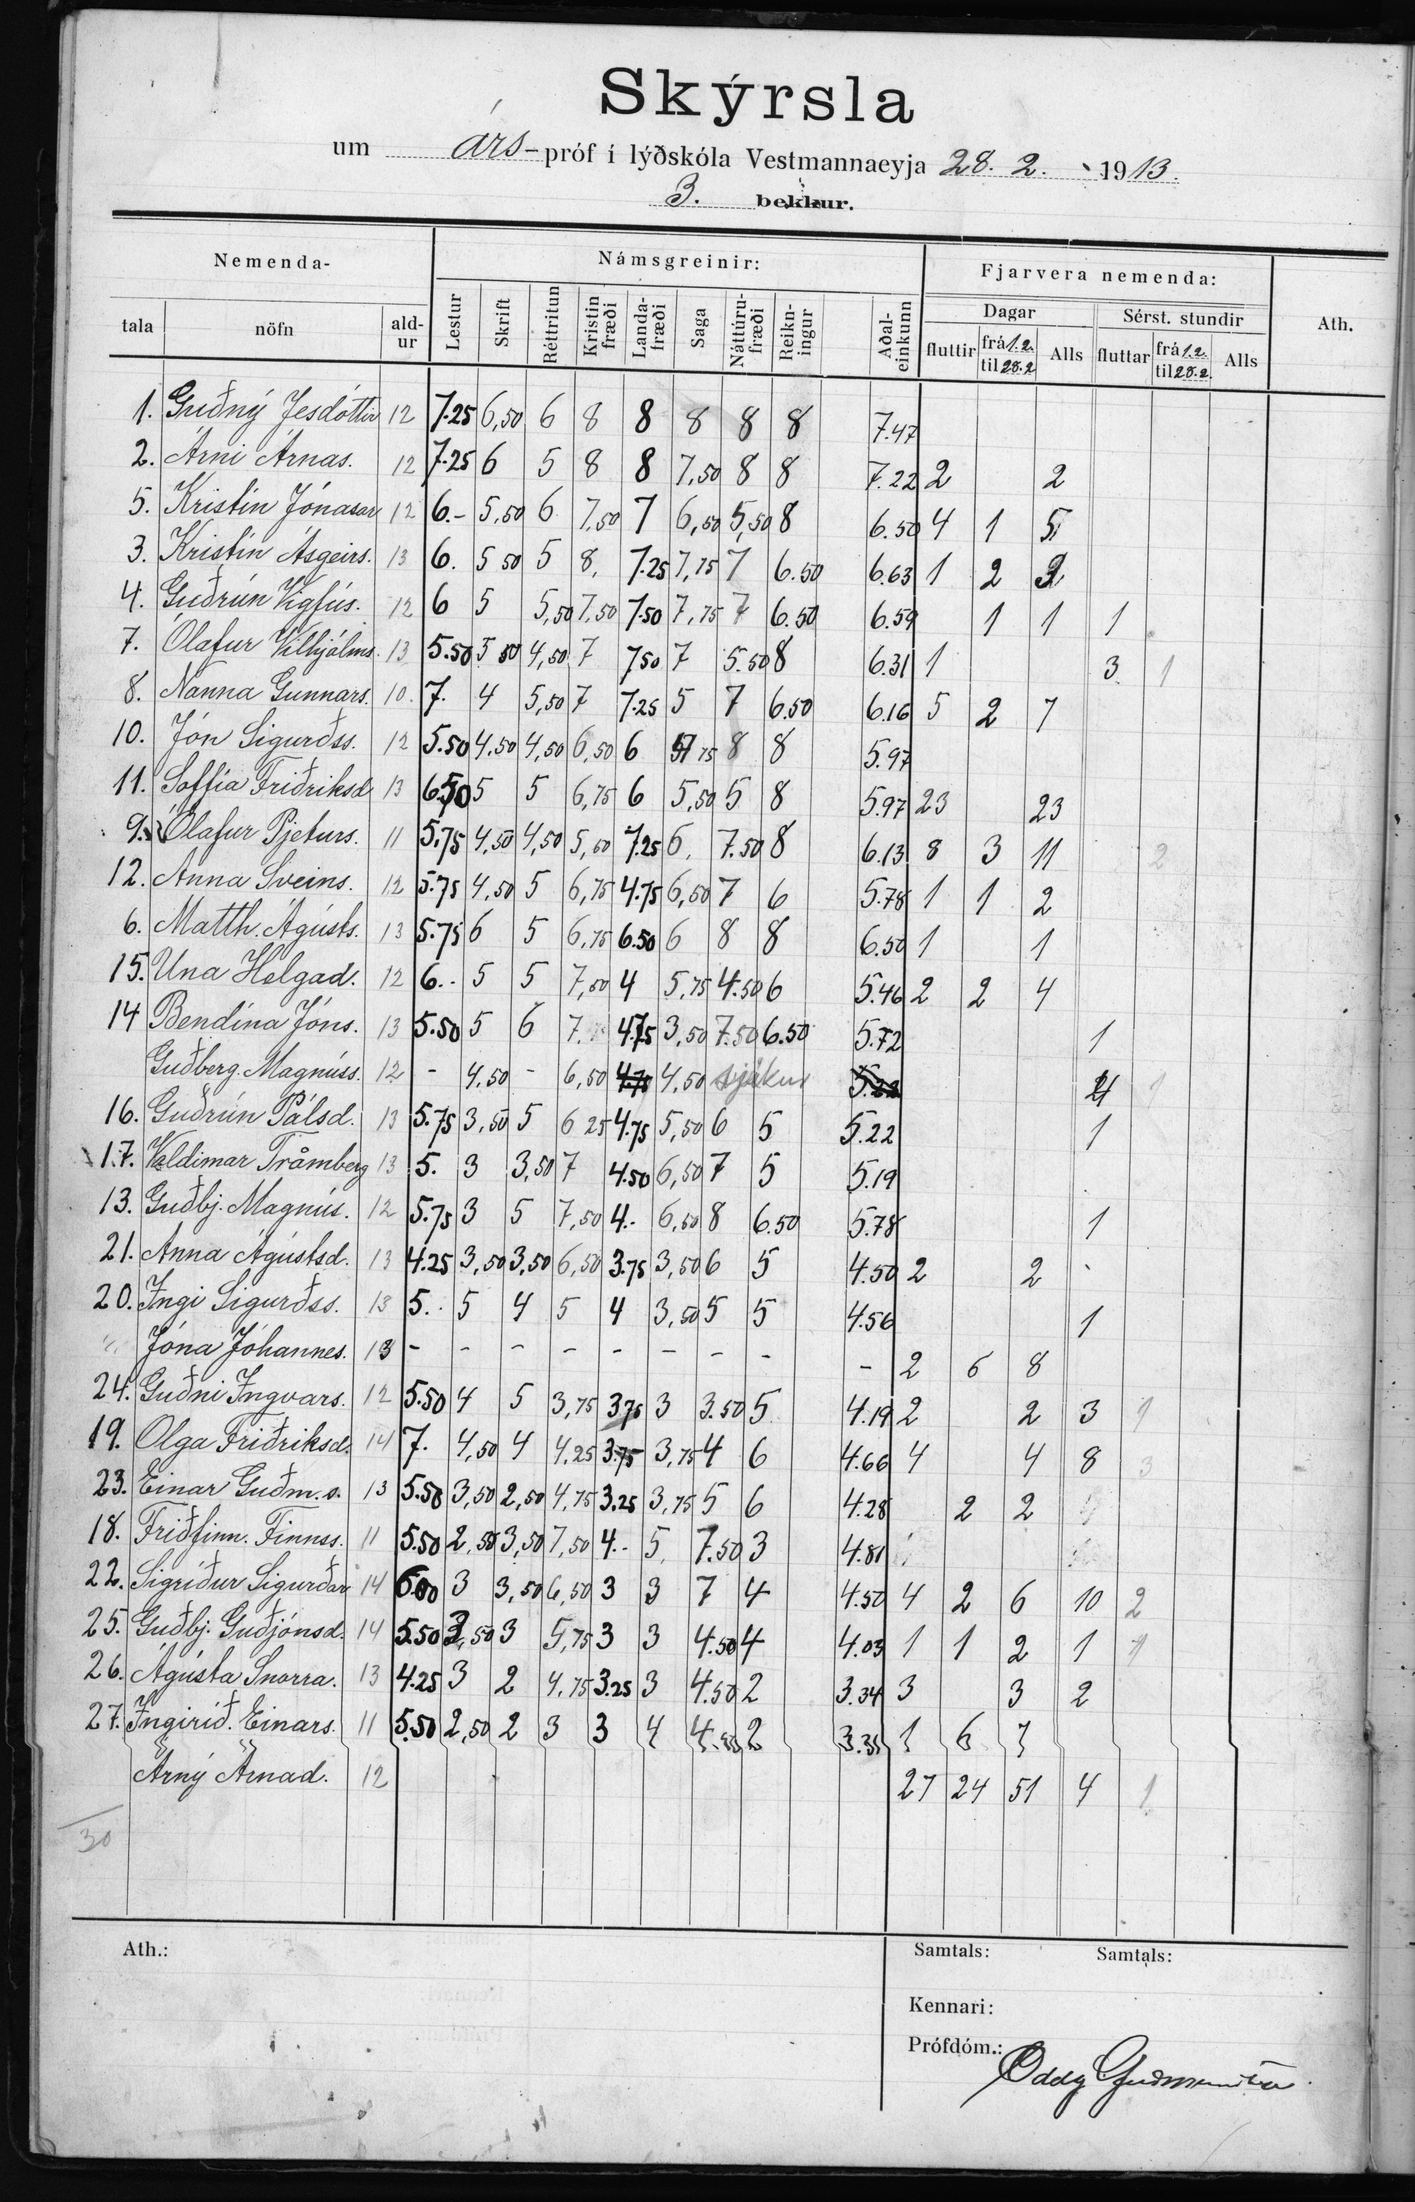 Skýrsla
um árs-próf í lýðskóla Vestmannaeyja 28. 2. 1913.
3. bekkur.
Nemenda- Námsgreinir: Fjarvera nemenda: Ath.
tala nöfn ald-ur Lestur Skrift Réttritun Kristin fræði Landa-fræði Saga Náttúru-fræði Reikn-ingur Aðal-einkunn Dagar Sérst. stundir
fluttir frá 1.2. til 28.2 Alls fluttar frá 1.2. til 28.2. Alls
1. Guðný Jesdóttir 12 7.25 6,50 6 8 8 8 8 8 7.47
2. Árni Árnas. 12 7.25 6 5 8 8 7,50 8 8 7.22 2 2
5. Kristín Jónasar 12 6.- 5,50 6 7,50 7 6,50 5,50 8 6.50 4 1 5
3. Kristín Ásgeirs. 13 6. 5 50 5 8, 7.25 7,75 7 6.50 6.63 1 2 3
4. Guðrún Vigfús. 12 6 5 5,50 7,50 7.50 7,75 7 6.50 6.59 1 1 1
7. Ólafur Vilhjálms. 13 5.50 5 50 4,50 7 750 7 5.50 8 6.31 1 3 1
8. Nanna Gunnars. 10. 7. 4 5,50 7 7.25 5 7 6.50 6.16 5 2 7
10. Jón Sigurðss. 12 5.50 4,50 4,50 6,50 6 75 8 8 5.97
11. Soffía Friðriksd 13 6.50 5 5 6,75 6 5,50 5 8 5.97 23 23
9. Ólafur Pjeturs. 11 5.75 4,50 4,50 5,50 7.25 6. 7.50 8 6.13 8 3 11 2
12. Anna Sveins. 12 5.75 4,50 5 6,75 4.75 6,50 7 6 5.78 1 1 2
6. Matth. Ágústs. 13 5.75 6 5 6,75 6.50 6 8 8 6.50 1 1
15. Una Helgad. 12 6.- 5 5 7,50 4 5,75 4.50 6 5.46 2 2 4
14 Bendína Jóns. 13 5.50 5 6 7. 4.75 3,50 7.50 6.50 5.72 1
Guðberg. Magnúss. 12 - 4,50 - 6,50 4.75 4,50 sjúkur 5.22 4 1
16. Guðrún Pálsd. 13 5.75 3,50 5 6 25 4.75 5,50 6 5 5.22 1
17. Valdimar Tråmberg 13 5. 3 3,50 7 4.50 6,50 7 5 5.19
13. Guðbj. Magnús. 12 5.75 3 5 7,50 4.- 6,50 8 6.50 5.78 1
21. Anna Ágústsd. 13 4.25 3,50 3,50 6,50 3.75 3,50 6 5 4.50 2 2
20. Ingi Sigurðss. 13 5. 5 4 5 4 3,50 5 5 4.56 1
Jóna Jóhannes. 13 - - - - - - - - - 2 6 8
24. Guðni Ingvars. 12 5.50 4 5 3,75 3.75 3 3.50 5 4.19 2 2 3 1
19. Olga Friðriksd. 14 7. 4,50 4 4,25 3.75 3,75 4 6 4.66 4 4 8 3
23. Einar Guðm.s. 13 5.50 3,50 2,50 4,75 3.25 3,75 5 6 4.28 2 2
18. Friðfinn. Finnss. 11 5.50 2,50 3,50 7,50 4.- 5 7.50 3 4.81
22. Sigríður Sigurðar 14 6.00 3 3,50 6,50 3 3 7 4 4.50 4 2 6 10 2
25. Guðbj. Guðjónsd. 14 5.50 3,50 3 5,75 3 3 4.50 4 4.03 1 1 2 1 1
26. Ágústa Snorra. 13 4.25 3 2 4,75 3.25 3 4.50 2 3.34 3 3 2
27. Ingiríð. Einars. 11 5.50 2,50 2 3 3 4 2 1 6 7
Árný Árnad. 12 27 24 51 4 1
30
Ath.: Samtals: Samtals:
Kennari:
Prófdóm.: Oddg Guðmundsson